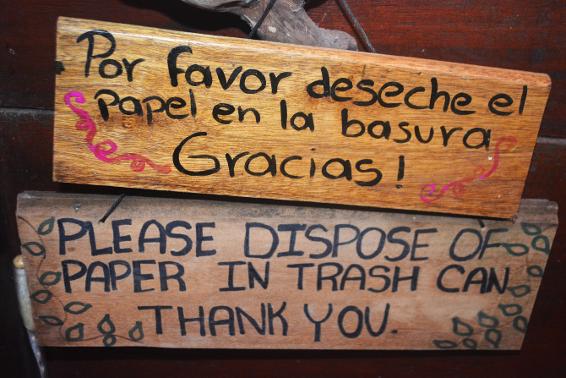 Por favor deseche el
papel en la basura
Gracias!
PLEASE DISPOSE OF
PAPER IN TRASH CAN
THANK YOU.